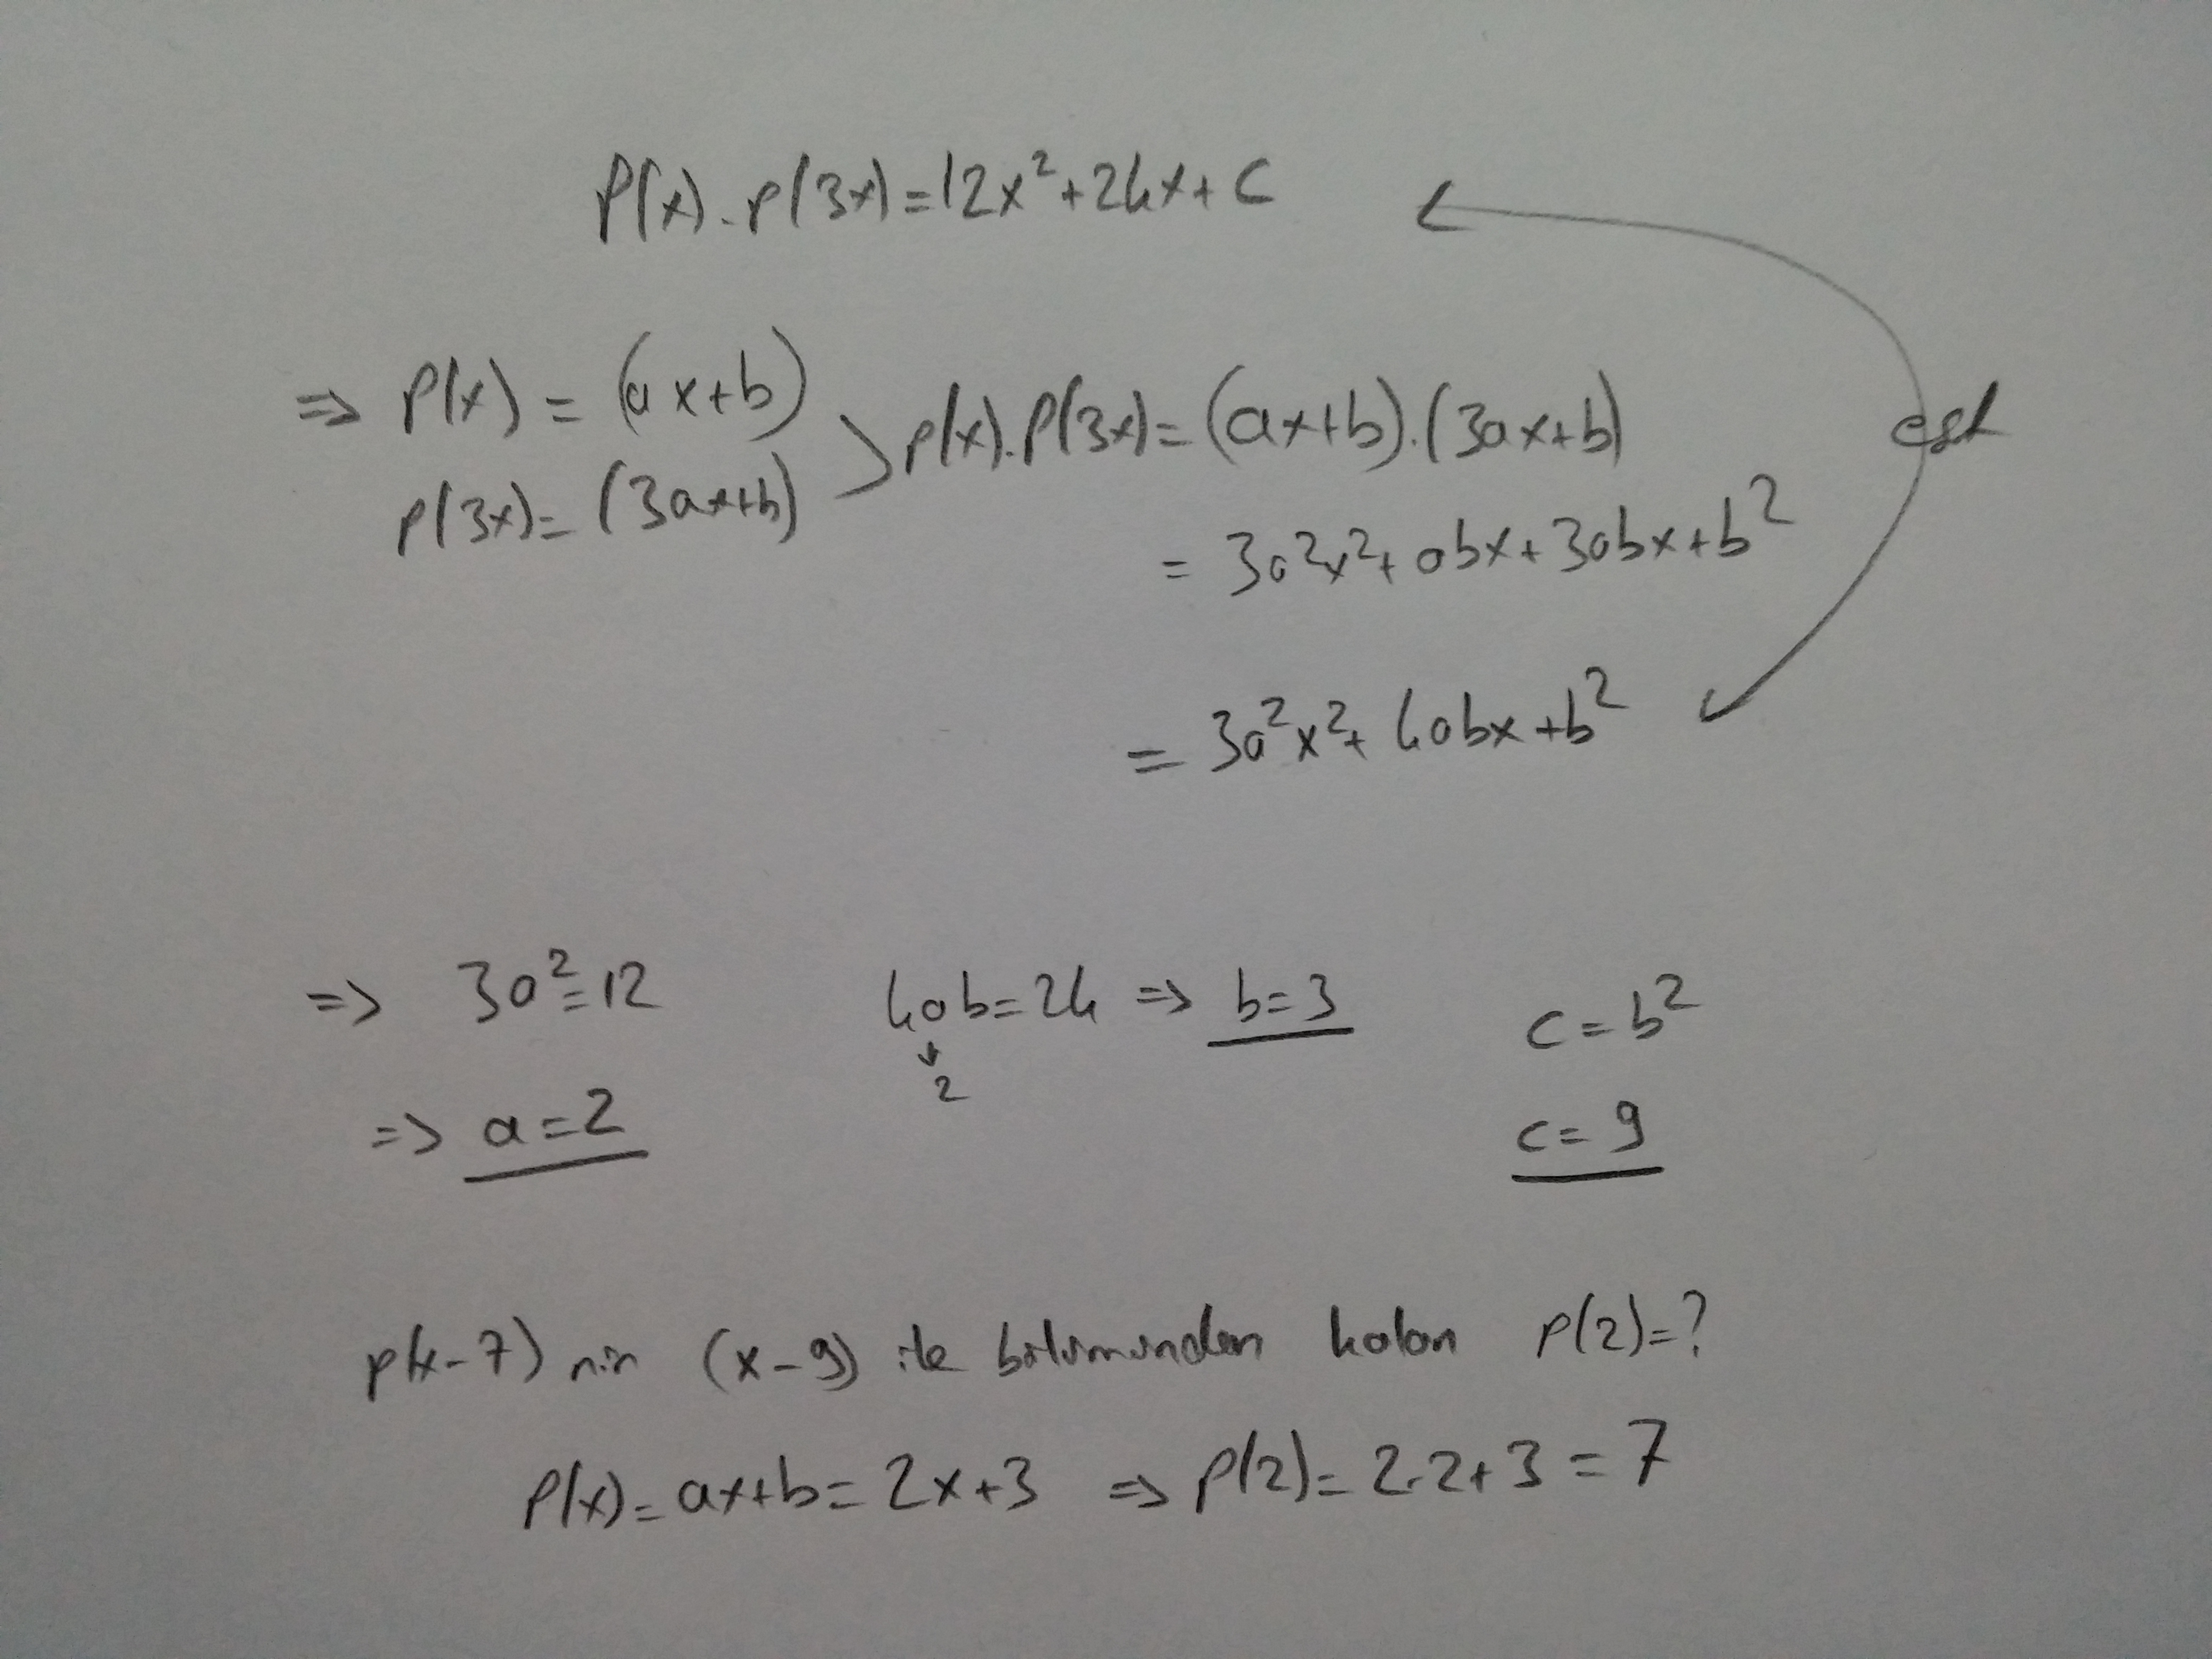 P(x).P(3x)=12x²+24x+c
⇒ P(x) = (ax+b)
P(3x)=(3ax+b)
> P(x).P(3x)=(ax+b).(3ax+b)
eşit
= 3a²x²+abx+3abx+b²
= 3a²x²+4abx+b²
⇒ 3a²=12
4ab=24 ⇒ b=3
c=b²
↓
2
⇒ a=2
c=9
P(x-7) nin (x-9) ile bölümünden kalan P(2)=?
P(x)=ax+b=2x+3 ⇒ P(2)=2.2+3=7